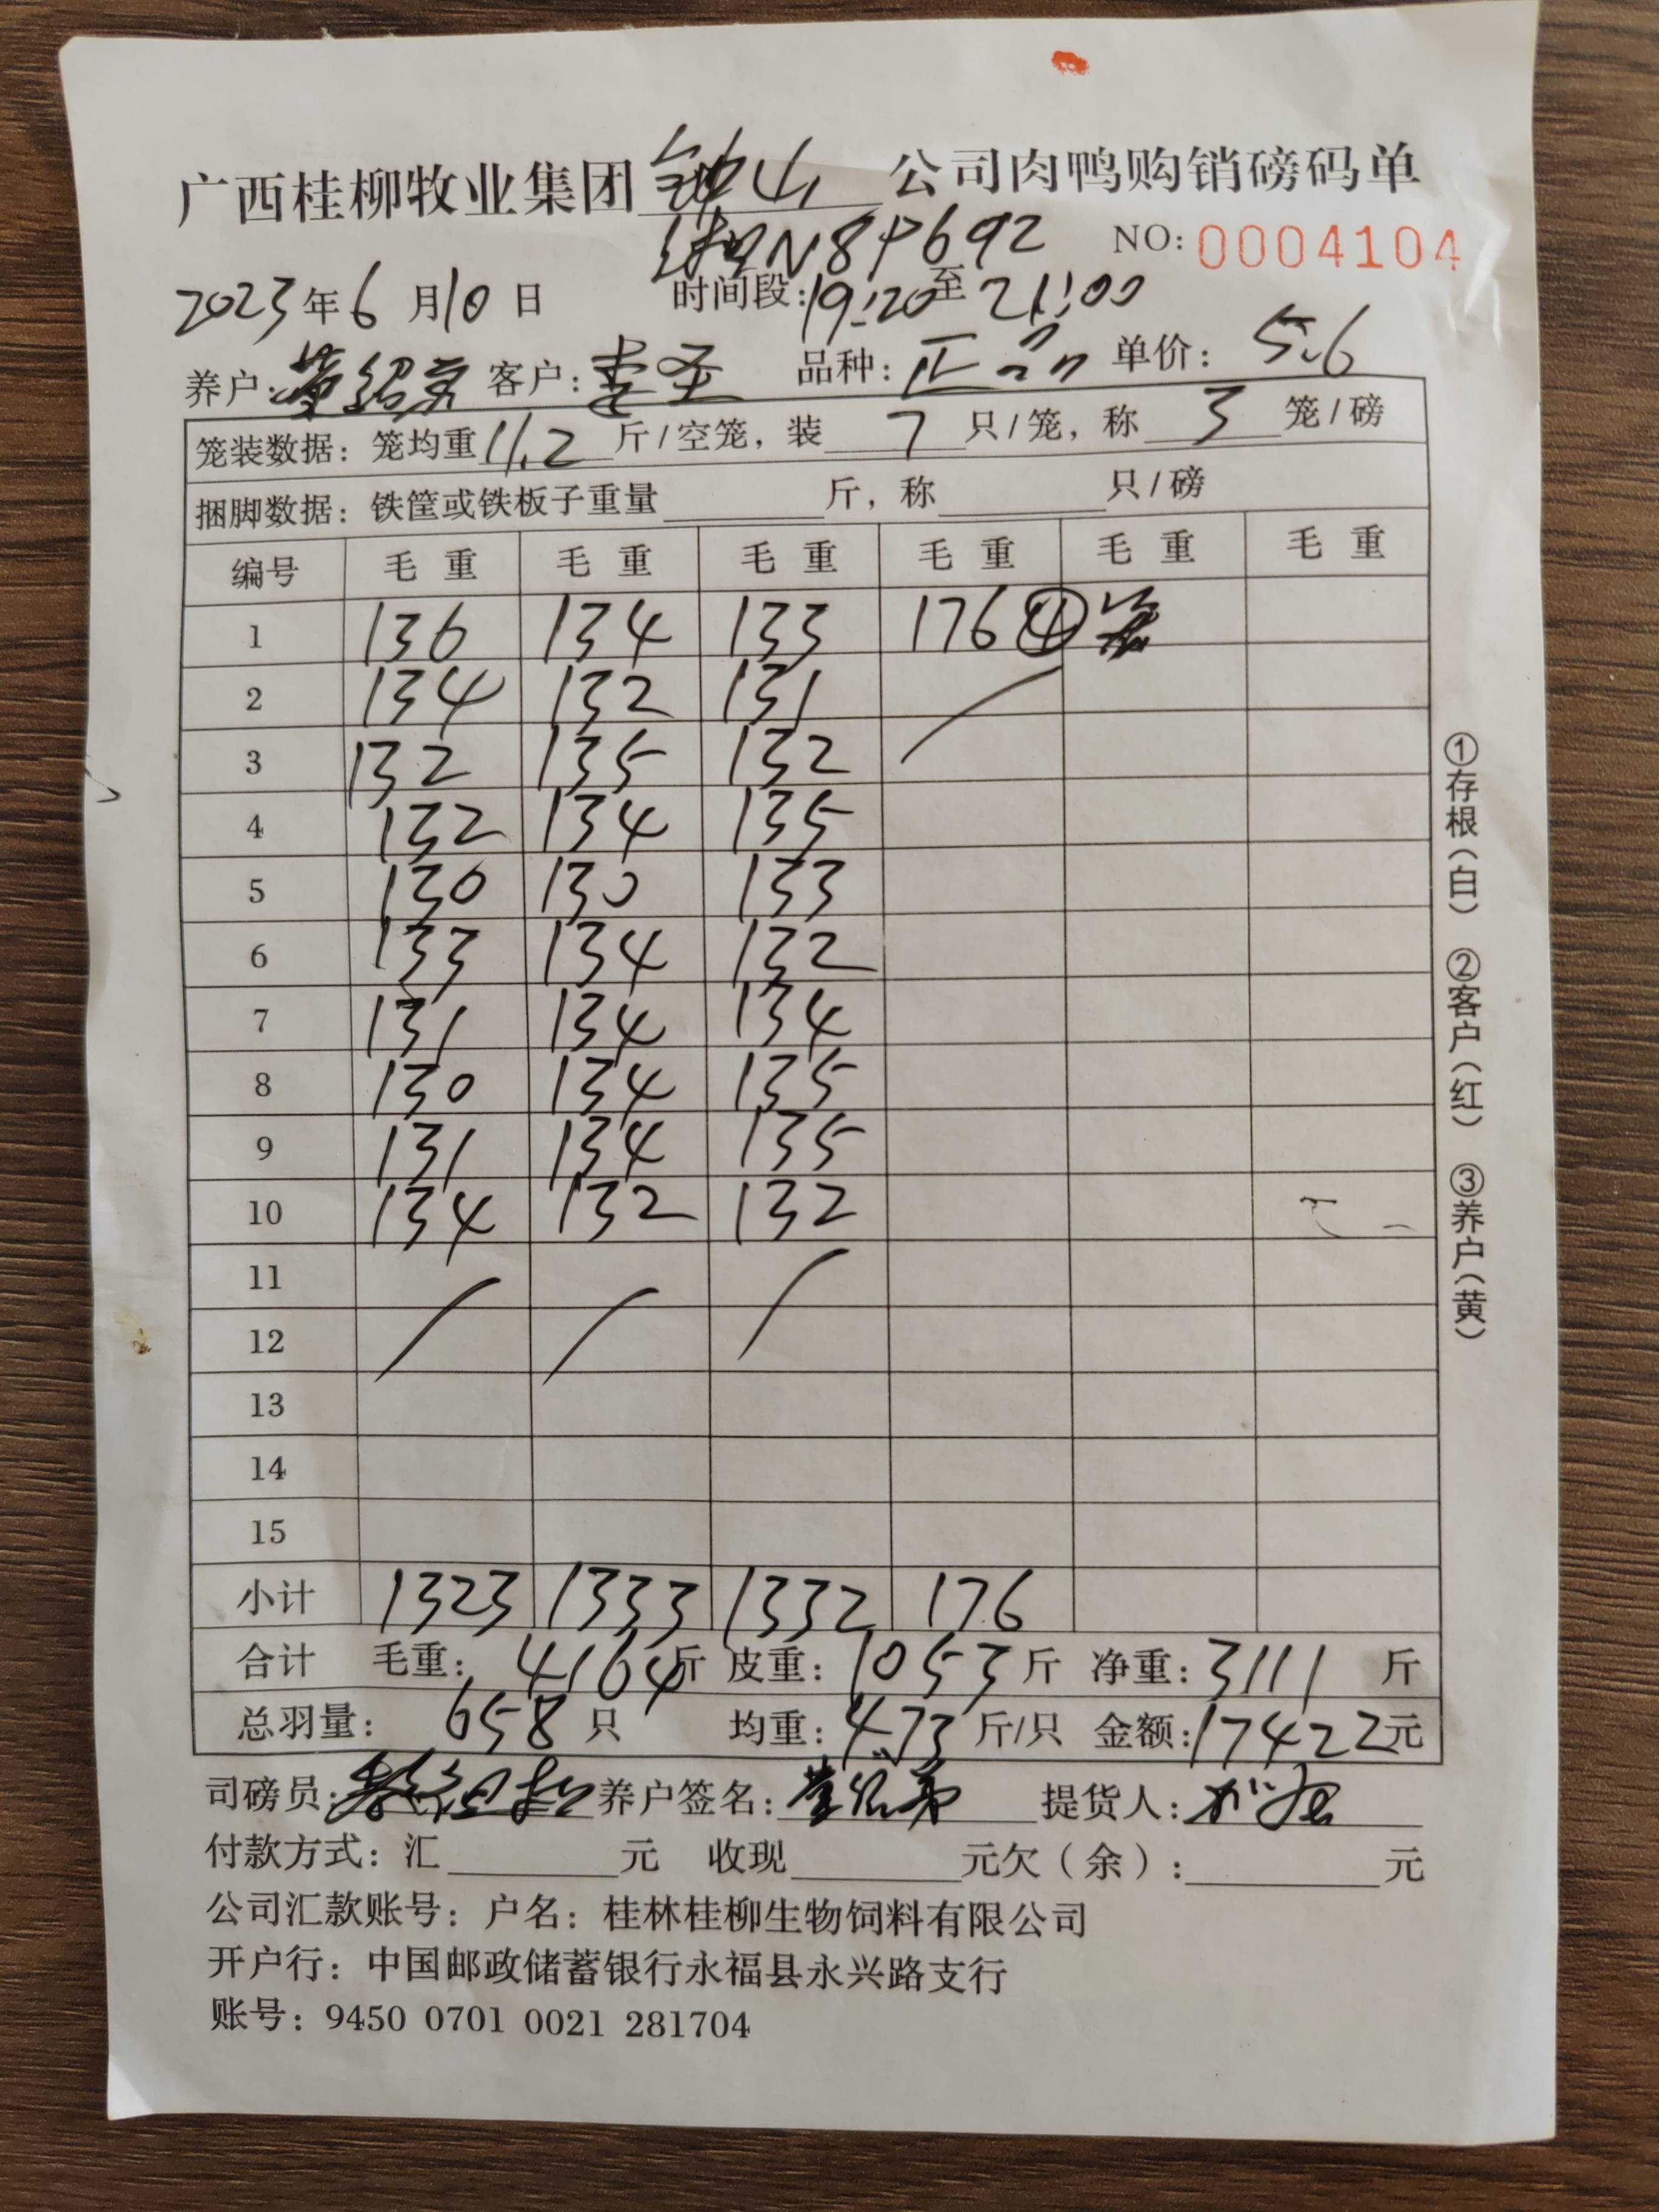 广西桂柳牧业集团钟山公司肉鸭购销磅码单
N8P692 NO: 0004104
2023年6月10日 时间段: 19:20至21:00
养户: 董绍 客户: 李圣 品种: 正品 单价: 5.6
笼装数据: 笼均重11.2斤/空笼, 装7只/笼, 称3笼/磅
捆脚数据: 铁筐或铁板子重量 斤, 称 只/磅
编号 毛重 毛重 毛重 毛重 毛重 毛重
1 136 134 133 176 ④
2 134 132 131
3 132 135 132
4 132 134 135
5 130 130 133
6 133 134 132
7 131 134 134
8 130 134 135
9 131 134 135
10 134 132 132
11
12
13
14
15
小计 1323 1333 1332 176
合计 毛重: 4164斤 皮重: 1053斤 净重: 3111斤
总羽量: 658只 均重: 4.73斤/只 金额: 17422元
司磅员: 养户签名: 董 提货人:
付款方式: 汇 元 收现 元欠(余): 元
公司汇款账号: 户名: 桂林桂柳生物饲料有限公司
开户行: 中国邮政储蓄银行永福县永兴路支行
账号: 9450 0701 0021 281704
①存根(白) ②客户(红) ③养户(黄)